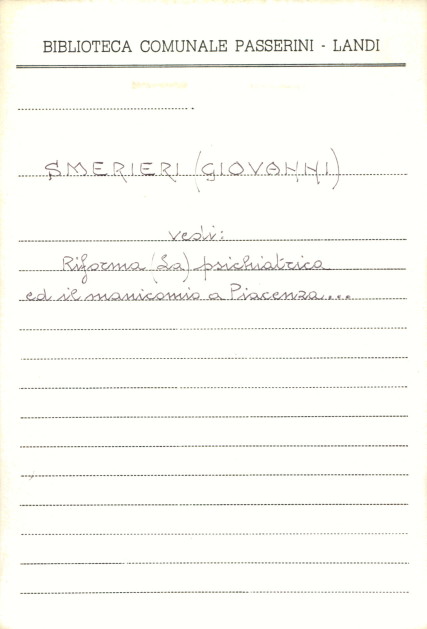 BIBLIOTECA COMUNALE PASSERINI - LANDI
SMERIERI (GIOVANNI)
vedi:
Riforma (La) psichiatrica
ed il manicomio a Piacenza...